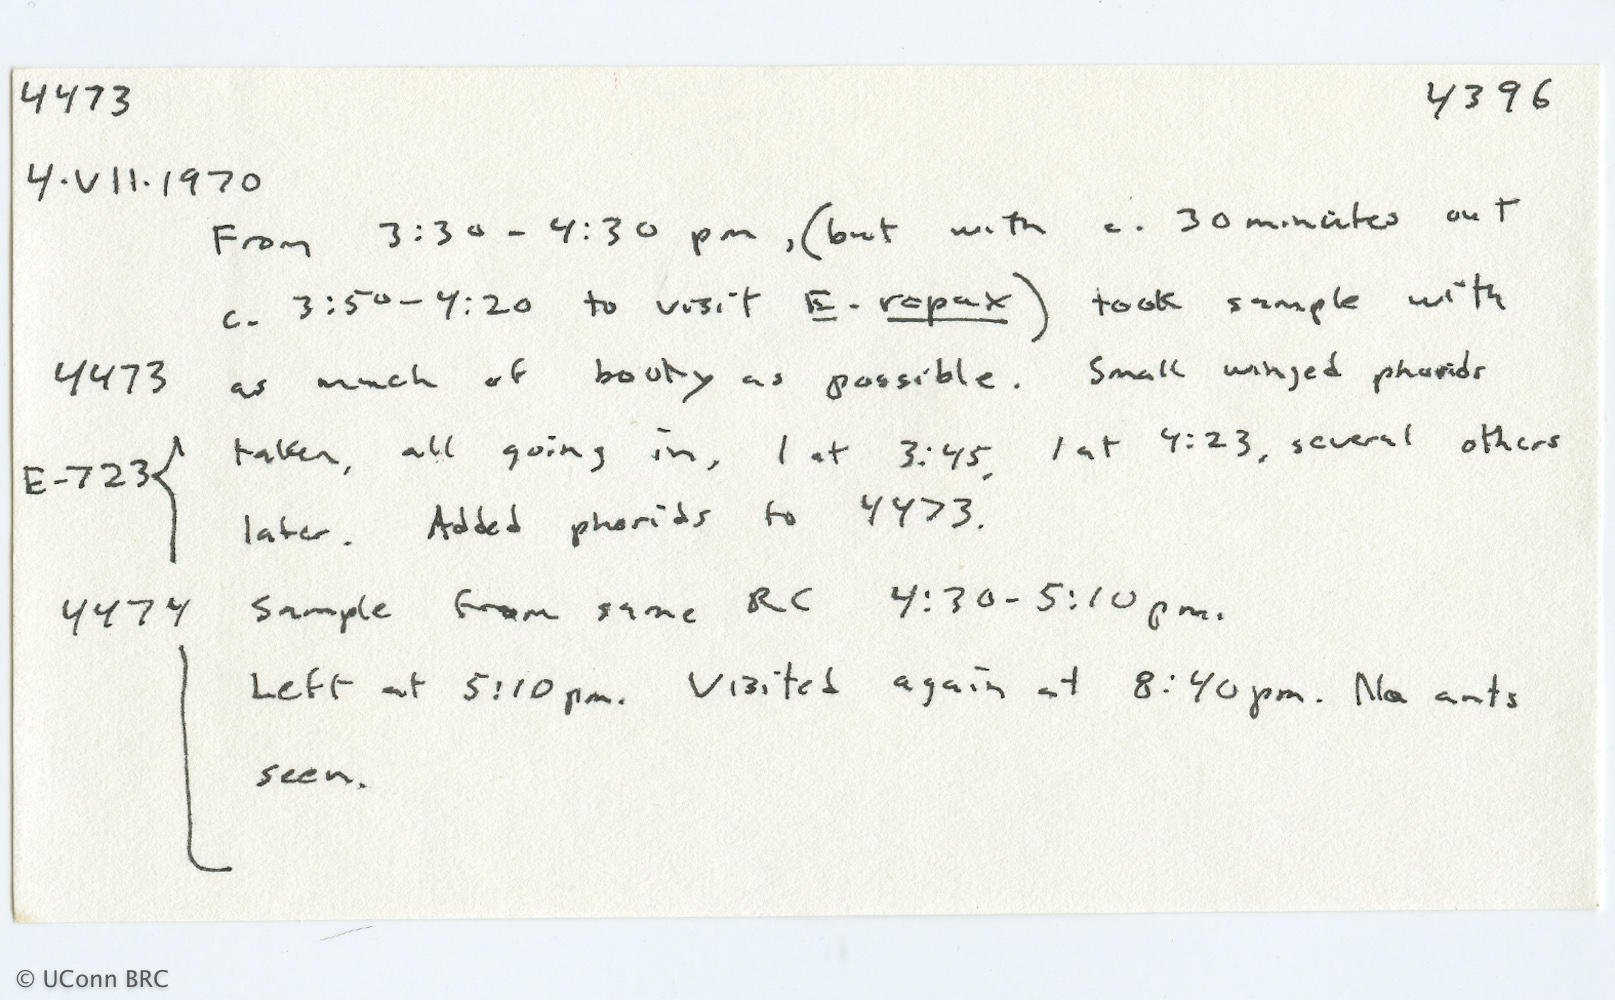 4473 4396
4.VII.1970
From 3:30-4:30 pm, (but with c. 30 minutes out
c. 3:50-4:20 to visit E. rapax) took sample with
4473 as much of booty as possible. Small winged phorids
E-723 taken, all going in, 1 at 3:45, 1 at 4:23, several others
later. Added phorids to 4473.
4474 Sample from same RC 4:30-5:10 pm.
Left at 5:10 pm. Visited again at 8:40 pm. No ants
seen.
© UConn BRC